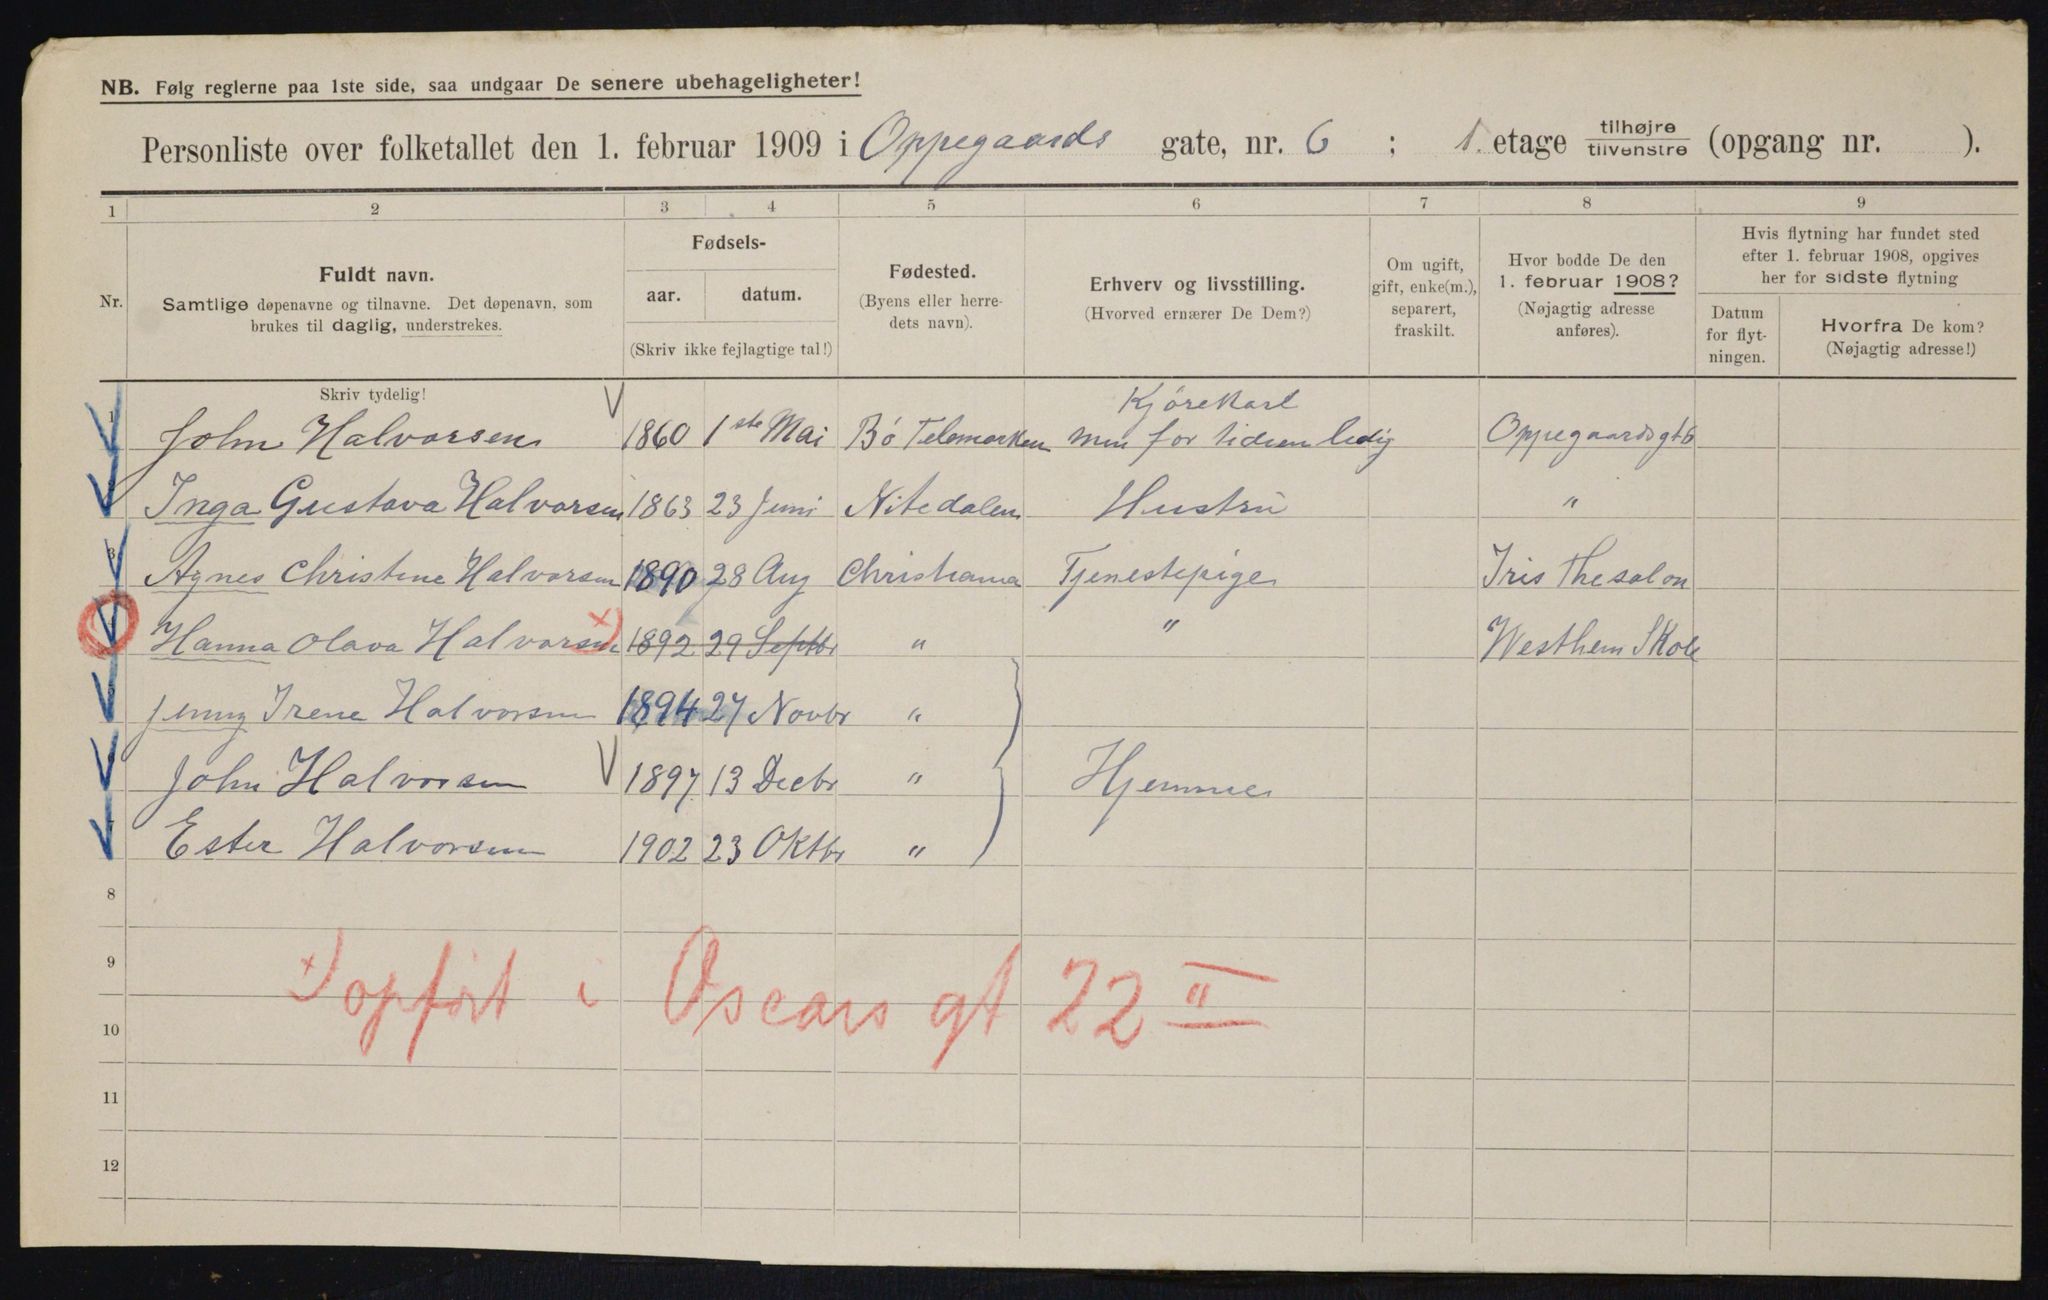 NB. Følg reglerne paa 1ste side, saa undgaar De senere ubehageligheter!
Personliste over folketallet den 1. februar 1909 i Oppegaards gate, nr. 6 ; 1. etage tilhøjre tilvenstre (opgang nr. ).
1 2 3 4 5 6 7 8 9
Nr.
Fuldt navn.
Samtlige døpenavne og tilnavne. Det døpenavn, som
brukes til daglig, understrekes.
Fødsels-
aar. datum.
(Skriv ikke fejlagtige tal!)
Fødested.
(Byens eller herre-
dets navn).
Erhverv og livsstilling.
(Hvorved ernærer De Dem?)
Om ugift,
gift, enke(m.),
separert,
fraskilt.
Hvor bodde De den
1. februar 1908?
(Nøjagtig adresse
anføres).
Hvis flytning har fundet sted
efter 1. februar 1908, opgives
her for sidste flytning
Datum
for flyt-
ningen.
Hvorfra De kom?
(Nøjagtig adresse!)
Skriv tydelig!
Kjørekarl
1 John Halvorsen 1860 1ste Mai Bø Telemarken men for tiden ledig Oppegaardsgt 6
Inga Gustava Halvorsen 1863 23 Juni Nitedalen Hustru "
3 Agnes Christine Halvorsen 1890 28 Aug Christiania Tjenestepige Iris Thesalon
Hanna Olava Halvorsen x) 1892 29 Septbr " " Westhem Skole
Jenny Irene Halvorsen 1894 27 Novbr "
John Halvorsen 1897 13 Decbr " Hjemme
Ester Halvorsen 1902 23 Oktbr "
8
9
x) opført i Oscars gt 22 II
10
11
12